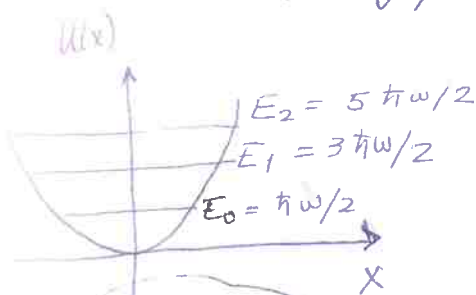 U(x)
E₂ = 5 ħω/2
E₁ = 3 ħω/2
E₀ = ħω/2
X